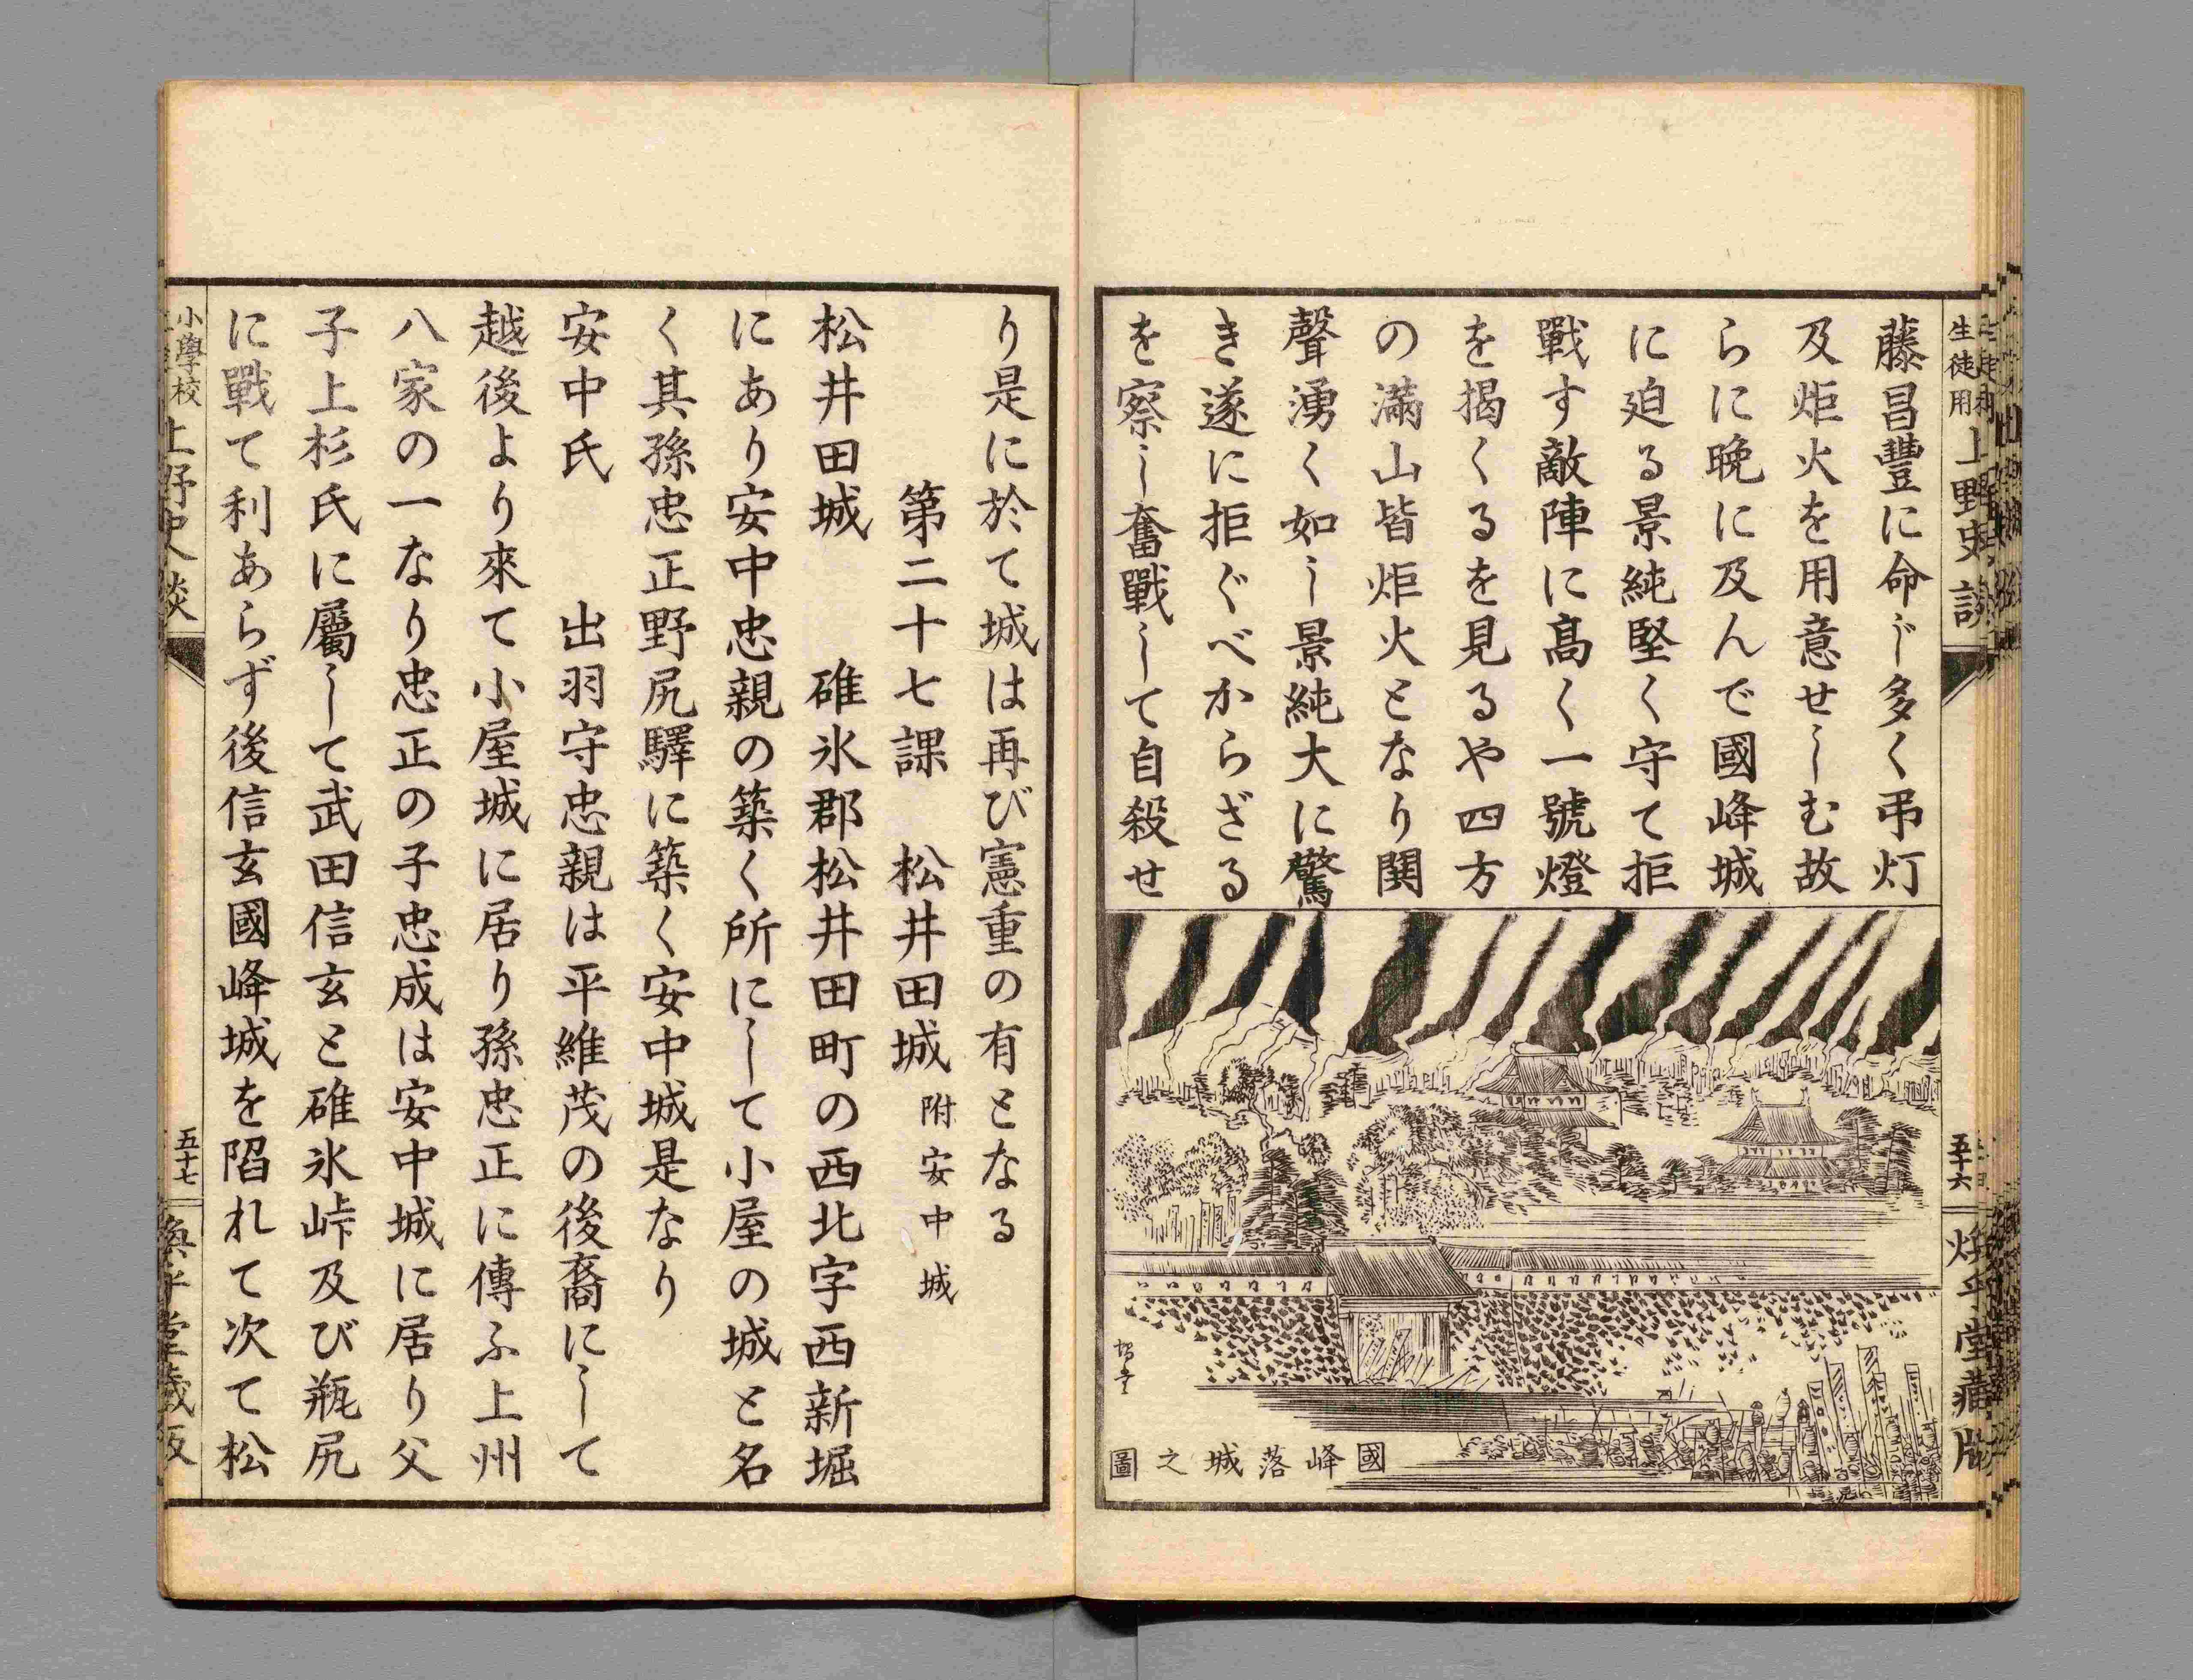 生徒用 上野史談
藤昌豐に命じ多く弔灯
及炬火を用意せしむ故
らに晩に及んで國峰城
に迫る景純堅く守て拒
戰す敵陣に髙く一號燈
を揭くるを見るや四方
の滿山皆炬火となり鬨
聲湧く如し景純大に驚
き遂に拒ぐべからざる
を察し奮戰して自殺せ
國峰落城之圖
五十六
堂藏版
り是に於て城は再び憲重の有となる
第二十七課 松井田城 附安中城
松井田城 碓氷郡松井田町の西北字西新堀
にあり安中忠親の築く所にして小屋の城と名
く其孫忠正野尻驛に築く安中城是なり
安中氏 出羽守忠親は平維茂の後裔にして
越後より來て小屋城に居り孫忠正に傳ふ上州
八家の一なり忠正の子忠成は安中城に居り父
子上杉氏に屬して武田信玄と碓氷峠及び瓶尻
に戰て利あらず後信玄國峰城を陷れて次て松
小學校 上野史談
五十七
堂藏版